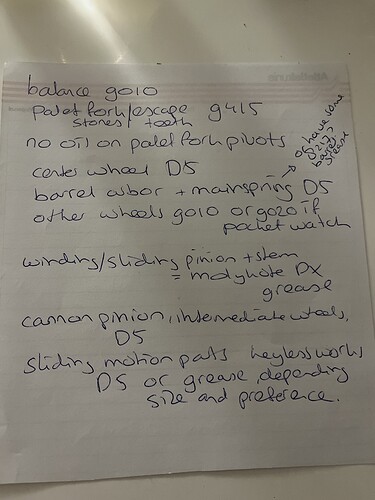 balance 9010
palet fork/escape 9415
stones/ teeth
no oil on paletfork pivots
center wheel D5
barrel arbor + mainspring D5
or have some
8217
barrel
grease
other wheels 9010 or 9020 if
pocket watch
winding/sliding pinion + stem
= molykote DX
grease
cannon pinion, intermediate wheels,
D5
sliding motion parts keyless works
D5 or grease, depending
size and preference.